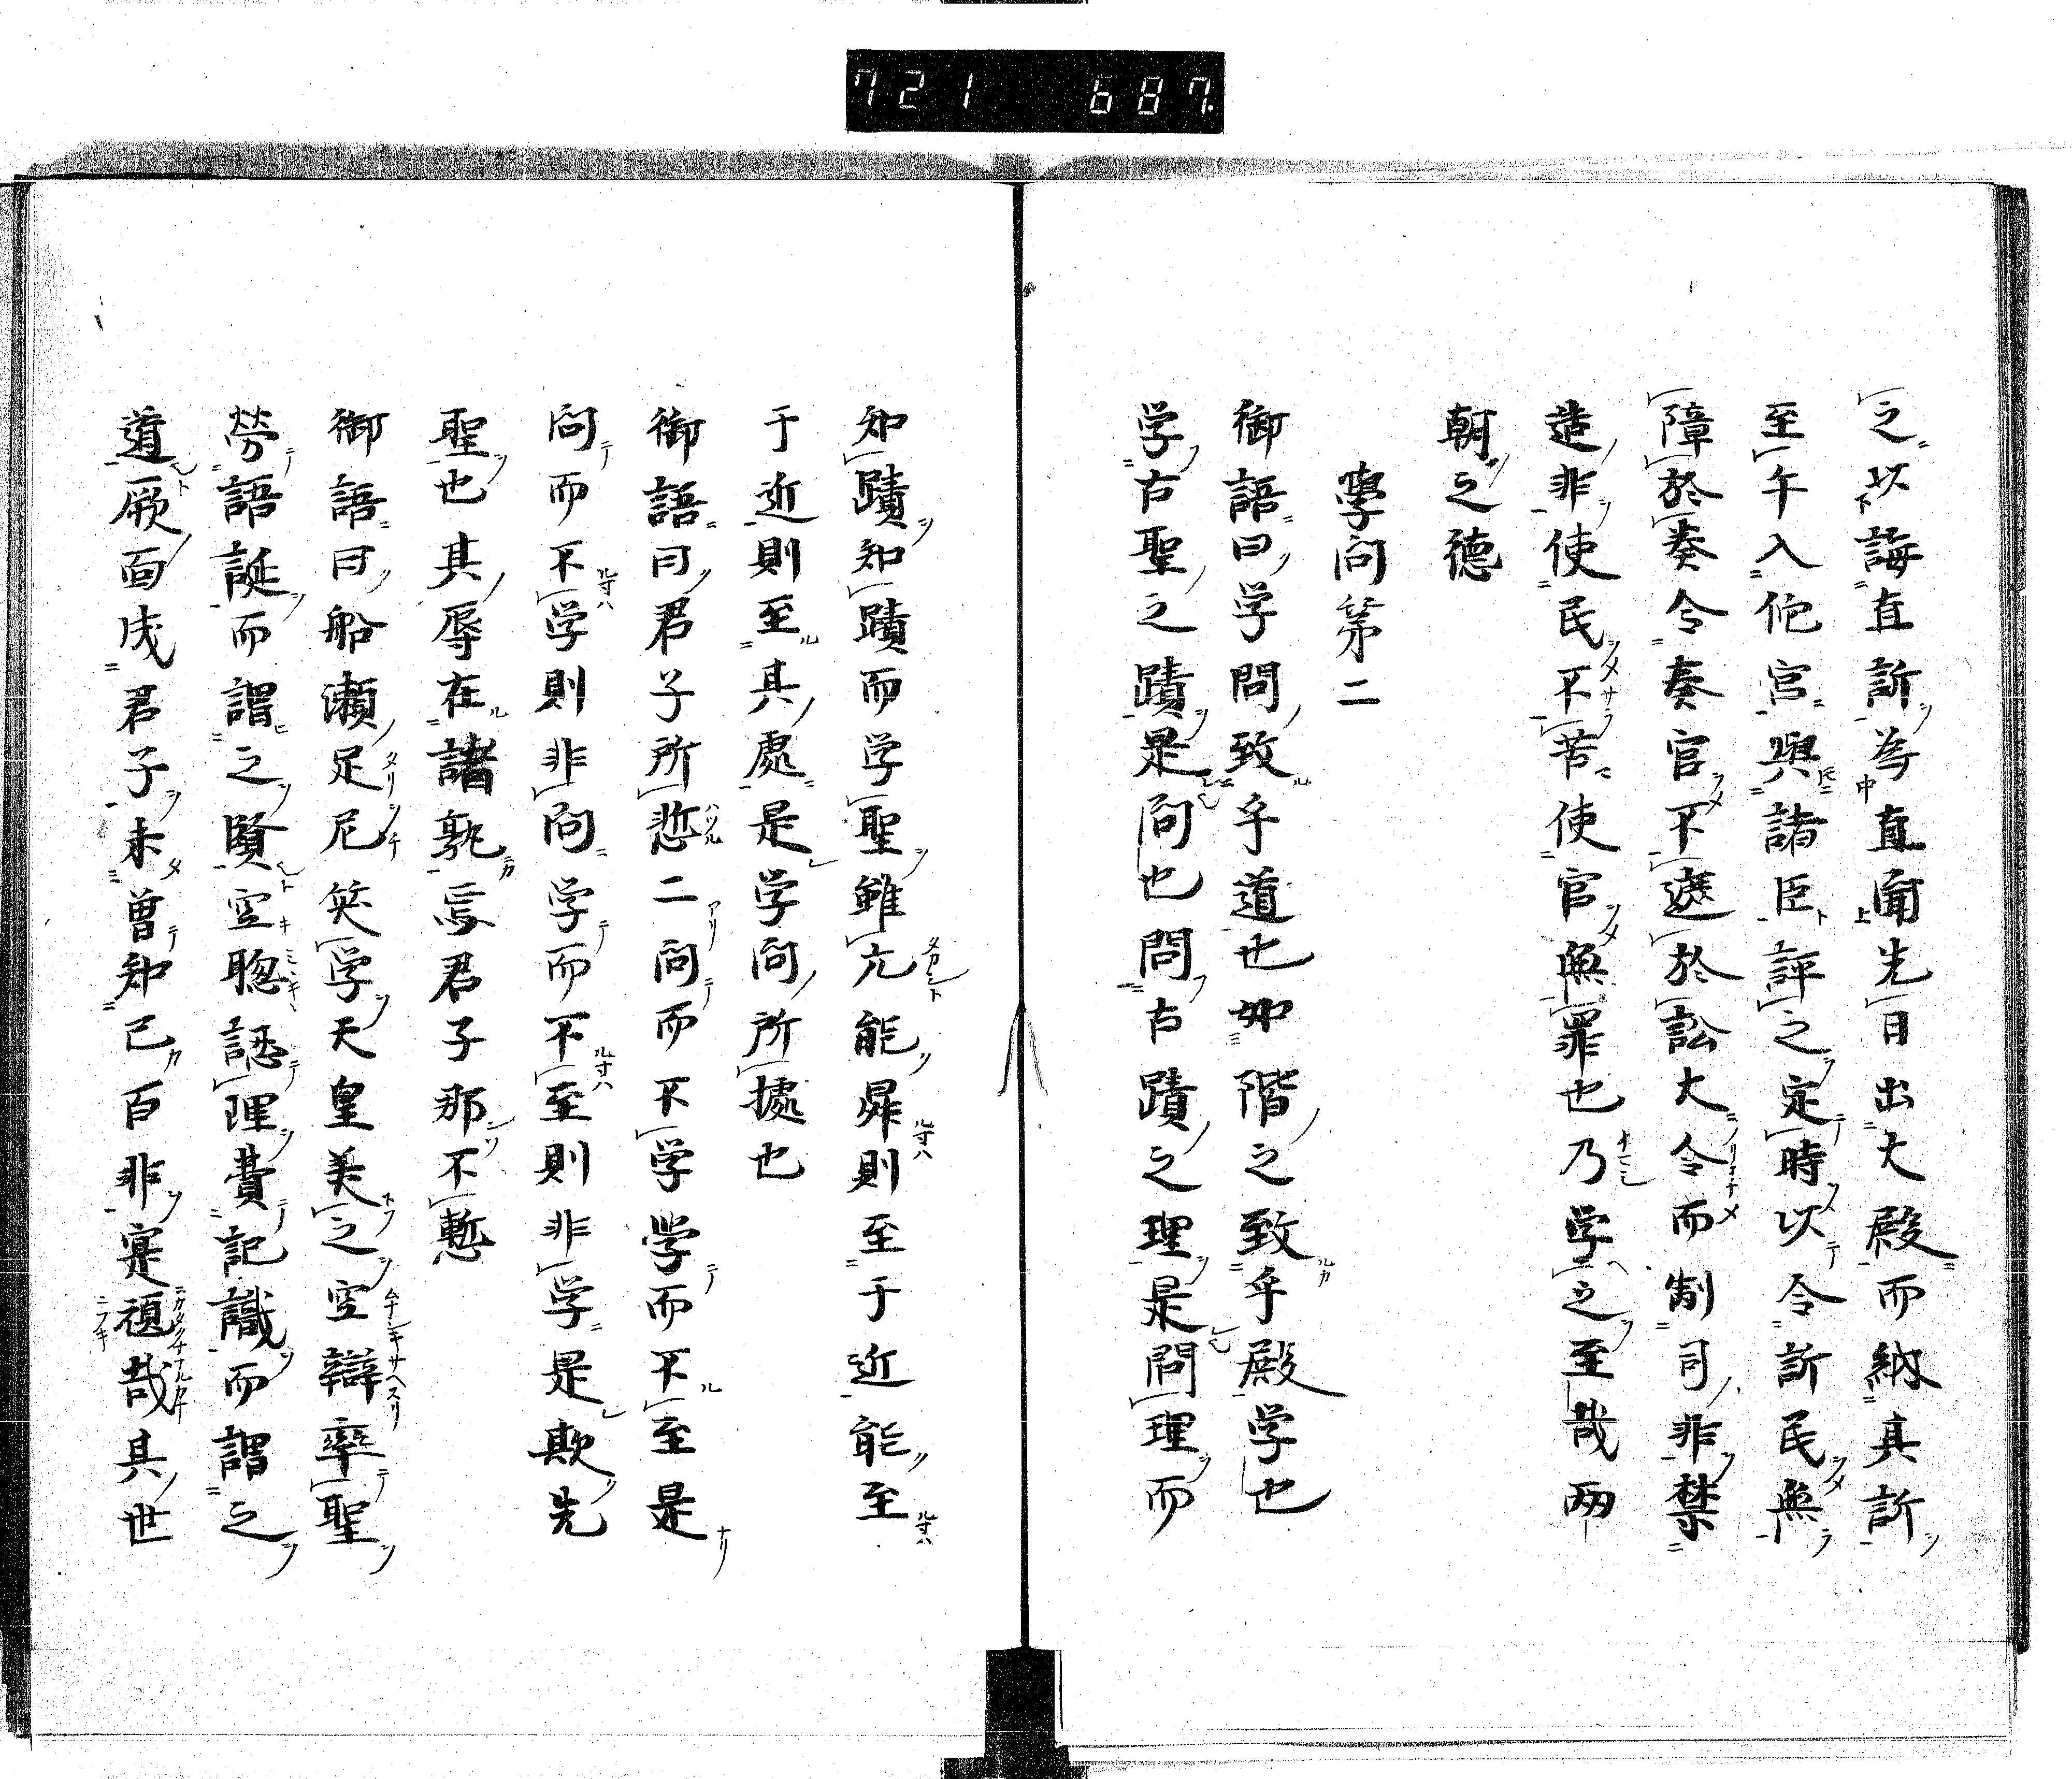 721 687
之以誨直訴為直聞先日出大殿而納其訴
至午入他宮與諸臣評之定時以令訴民無
障於奏令奏官不遮於訟大令而制司非禁
造非使民不苦使官無罪也乃学之至哉両
朝之德
學問第二
御語曰学問致乎道也如階之致乎殿学也
学古聖之蹟是問也問古蹟之理是問理而
知蹟知蹟而学聖雖亢能昇則至于近能至
于近則至其處是学問所據也
御語曰君子所悲二問而不学學而不至是
問而不学則非問学而不至則非学是欺先
聖也其辱在諸孰焉君子那不慙
御語曰船瀬足尼笑学天皇美之空辯率聖
勞語誕而謂之賢空聡認理費記識而謂之
道厥面成君子未曽知己百非寔頑哉其世